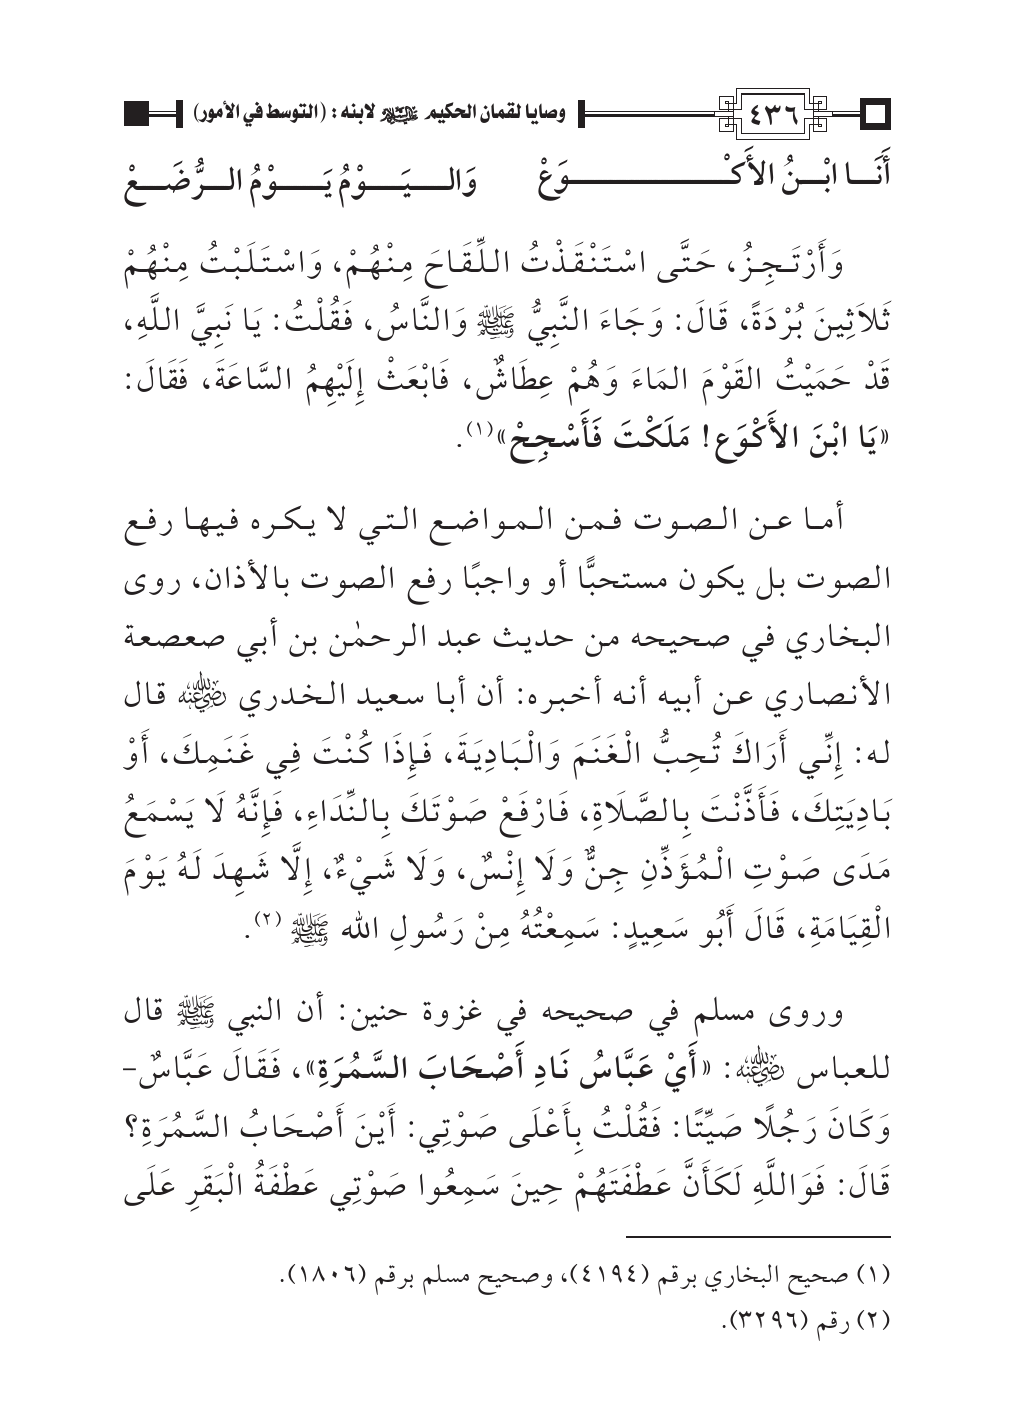 ٤٣٦ وصايا لقمان الحكيم عليه السلام لابنه : (التوسط في الأمور)
أَنَا ابْنُ الأَكْوَعْ وَاليَوْمُ يَوْمُ الرُّضَّعْ
وَأَرْتَجِزُ، حَتَّى اسْتَنْقَذْتُ اللِّقَاحَ مِنْهُمْ، وَاسْتَلَبْتُ مِنْهُمْ
ثَلاَثِينَ بُرْدَةً، قَالَ: وَجَاءَ النَّبِيُّ ﷺ وَالنَّاسُ، فَقُلْتُ: يَا نَبِيَّ اللَّهِ،
قَدْ حَمَيْتُ القَوْمَ المَاءَ وَهُمْ عِطَاشٌ، فَابْعَثْ إِلَيْهِمُ السَّاعَةَ، فَقَالَ:
«يَا ابْنَ الأَكْوَعِ! مَلَكْتَ فَأَسْجِحْ»(١).
أما عن الصوت فمن المواضع التي لا يكره فيها رفع
الصوت بل يكون مستحبًّا أو واجبًا رفع الصوت بالأذان، روى
البخاري في صحيحه من حديث عبد الرحمٰن بن أبي صعصعة
الأنصاري عن أبيه أنه أخبره: أن أبا سعيد الخدري رضي الله عنه قال
له: إِنِّي أَرَاكَ تُحِبُّ الْغَنَمَ وَالْبَادِيَةَ، فَإِذَا كُنْتَ فِي غَنَمِكَ، أَوْ
بَادِيَتِكَ، فَأَذَّنْتَ بِالصَّلَاةِ، فَارْفَعْ صَوْتَكَ بِالنِّدَاءِ، فَإِنَّهُ لَا يَسْمَعُ
مَدَى صَوْتِ الْمُؤَذِّنِ جِنٌّ وَلَا إِنْسٌ، وَلَا شَيْءٌ، إِلَّا شَهِدَ لَهُ يَوْمَ
الْقِيَامَةِ، قَالَ أَبُو سَعِيدٍ: سَمِعْتُهُ مِنْ رَسُولِ الله ﷺ (٢).
وروى مسلم في صحيحه في غزوة حنين: أن النبي ﷺ قال
للعباس رضي الله عنه: «أَيْ عَبَّاسُ نَادِ أَصْحَابَ السَّمُرَةِ»، فَقَالَ عَبَّاسٌ-
وَكَانَ رَجُلًا صَيِّتًا: فَقُلْتُ بِأَعْلَى صَوْتِي: أَيْنَ أَصْحَابُ السَّمُرَةِ؟
قَالَ: فَوَاللَّهِ لَكَأَنَّ عَطْفَتَهُمْ حِينَ سَمِعُوا صَوْتِي عَطْفَةُ الْبَقَرِ عَلَى
(١) صحيح البخاري برقم (٤١٩٤)، وصحيح مسلم برقم (١٨٠٦).
(٢) رقم (٣٢٩٦).